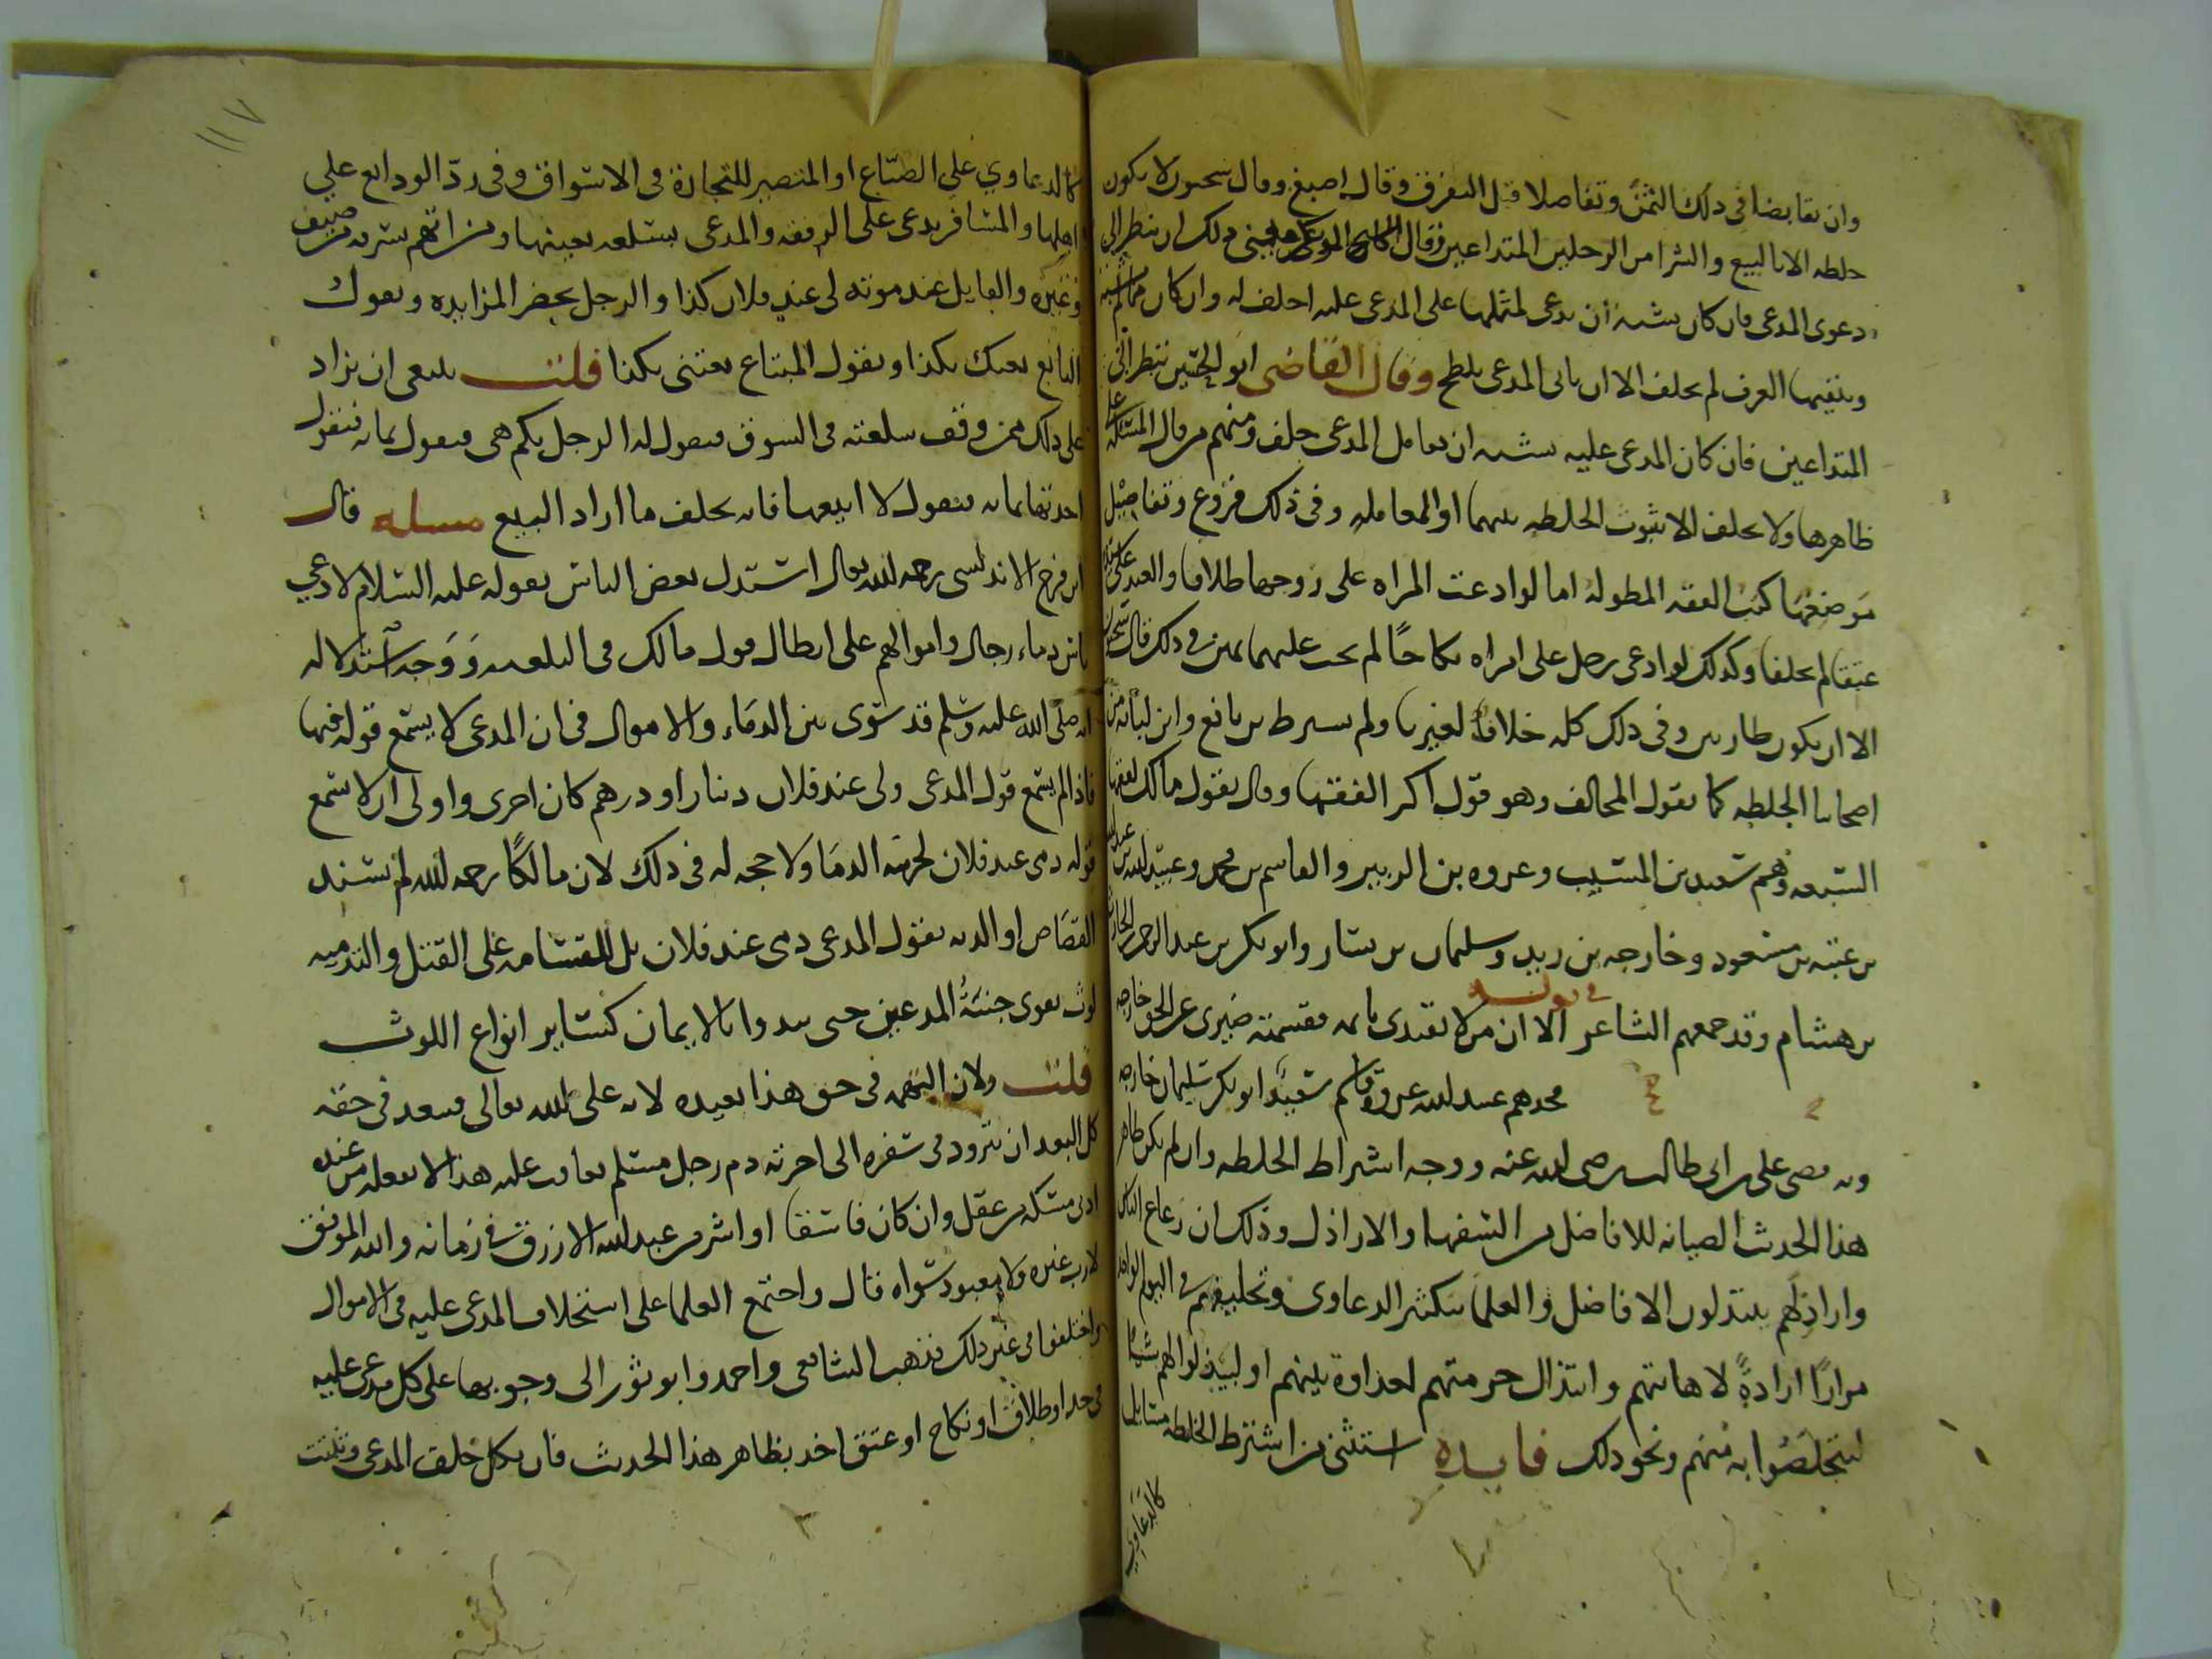 وان تقابضا في ذلك الثمن وتفاصلا قبل التفرق وقال اصبغ وقال سحنون لا يكون
خلطه الا بالبيع والشرا من الرجلين المتداعيين وقال ينظر الى
دعوى المدعى فان كان يشبه ان يدعى بمثلها على المدعى عليه احلف له وان كان مما لا يشبه
وينفيها العرف لم يحلف الا ان ياتى المدعى بلطخ وقال القاضى ابو الحسين ينظر الى
المتداعيين فان كان المدعى عليه يشبه ان يعامل المدعى حلف ومنهم من قال المسئلة على
ظاهرها ولا يحلف الا بثبوت الخلطه بينهما او المعامله وفى ذلك فروع وتفاصيل
موضعها كتب الفقه المطولة اما لو ادعت المراه على زوجها طلاقا والعبد على سيده
عتقا لم يحلفا وكذلك لو ادعى رجل على امراه نكاحا لم يجب عليهما يمين فى ذلك قال سحنون
الا ان يكون طاريين وفى ذلك كله خلاف لغيرنا ولم يشترط بن نافع وابن لبابه من
اصحابنا الخلطه كما يقول المخالف وهو قول اكثر الفقها وقال بقول مالك الفقها
السبعه وهم سعيد بن المسيب وعروه بن الزبير والقاسم بن محمد وعبيد الله بن عبد الله
بن عتبه بن مسعود وخارجه بن زيد وسليمان بن يسار وابو بكر بن عبد الرحمن بن الحارث
بن هشام وقد جمعهم الشاعر في قوله الا ان من لا يقتدى بايمه فقسمته ضيزى عن الحق خارجه
فخذهم عبيد الله عروة قاسم سعيد ابو بكر سليمان خارجه
وبه قضى على بن ابى طالب رضى الله عنه ووجه اشتراط الخلطه وان لم يكن ظاهر
هذا الحديث الصيانه للافاضل من السفها والاراذل وذلك ان رعاع الناس
واراذلهم يبتذلون الافاضل والعلما بتكثير الدعاوى وتحليفهم في اليوم الواحد
مرارًا ارادةً لاهانتهم وابتذال حرمتهم لعداوة بينهم او ليبذلوا لهم شيا
ليتخلصوا به منهم ونحو ذلك فايده استثنى من اشترط الخلطه مسايل
كالدعاوي
١١٧
كالدعاوي على الصناع او المنتصبين للتجارة فى الاسواق وفى ردّ الودايع على
اهلها والمسافر يدعى على الرفقه والمدعى بسلعه بعينها ومن اتهم بسرقه من ضيف
وغيره والقايل عند موته لى عند فلان كذا والرجل يحضر المزايده ويقول
البايع بعتك بكذا ويقول المبتاع بعتنى بكذا قلت ينبغى ان يزاد
على ذلك من وقف سلعته فى السوق فيقول له الرجل بكم هى فيقول بمايه فيقول
اخذتها بمايه فيقول لا ابيعها فانه يحلف ما اراد البيع مسله قال
ابن فرح الاندلسى رحمه الله تعالى استدل بعض الناس بقوله عليه السلام لادعي
ناس دماء رجال واموالهم على ابطال قول مالك فى التدميه ووجه استدلاله
انه صلى الله عليه وسلم قد سوّى بين الدماء والاموال فى ان المدعى لا يسمع قوله فيها
فاذا لم يسمع قول المدعى ولى عند فلان دينار او درهم كان احرى واولى ان لا يسمع
قوله دمى عند فلان لحرمه الدما ولا حجه له فى ذلك لان مالكًا رحمه الله لم يسند
القصاص او الديه بقول المدعى دمى عند فلان بل للقسامه على القتل والتدميه
لوث يقوى جنبة المدعين حتى يبدوا بالايمان كساير انواع اللوث
قلت ولان التهمه فى حق هذا بعيده لانه على لقا الله تعالى فيبعد فى حقه
كل البعد ان يتزود فى سفره الى اخرته دم رجل مسلم يعاقب عليه هذا لا يفعله من عنده
ادنى مسكه من عقل وان كان فاسقا او اشر من عبد الله الازرق في زمانه والله الموفق
لا رب غيره ولا معبود سواه قال واجتمع العلما على استحلاف المدعى عليه فى الاموال
واختلفوا فى غير ذلك فذهب الشافعى واحمد وابو ثور الى وجوبها على كل مدعى عليه
فى حد او طلاق او نكاح او عتق اخذ بظاهر هذا الحديث فان نكل حلف المدعى وثبتت